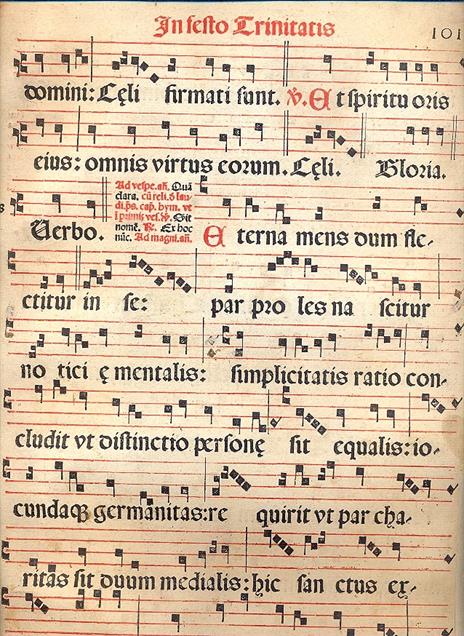 In festo Trinitatis
101
domini: Cęli firmati sunt. ℣. Et spiritu oris
eius: omnis virtus eorum. Cęli. Gloria.
Verbo.
Ad vespe. añ. Quā
clara. cū reli. d̄ lau-
di. p̄s. cap. hym. vt
ī primis ves. ℣. Sit
nomē. ℟. Ex hoc
nūc. Ad magni. añ.
Eterna mens dum fle-
ctitur in se: par pro les na scitur
no tici ę mentalis: simplicitatis ratio con-
cludit vt distinctio personę sit equalis: io-
cundaq̄ germanitas: re quirit vt par cha-
ritas sit duum medialis: hic san ctus ex-